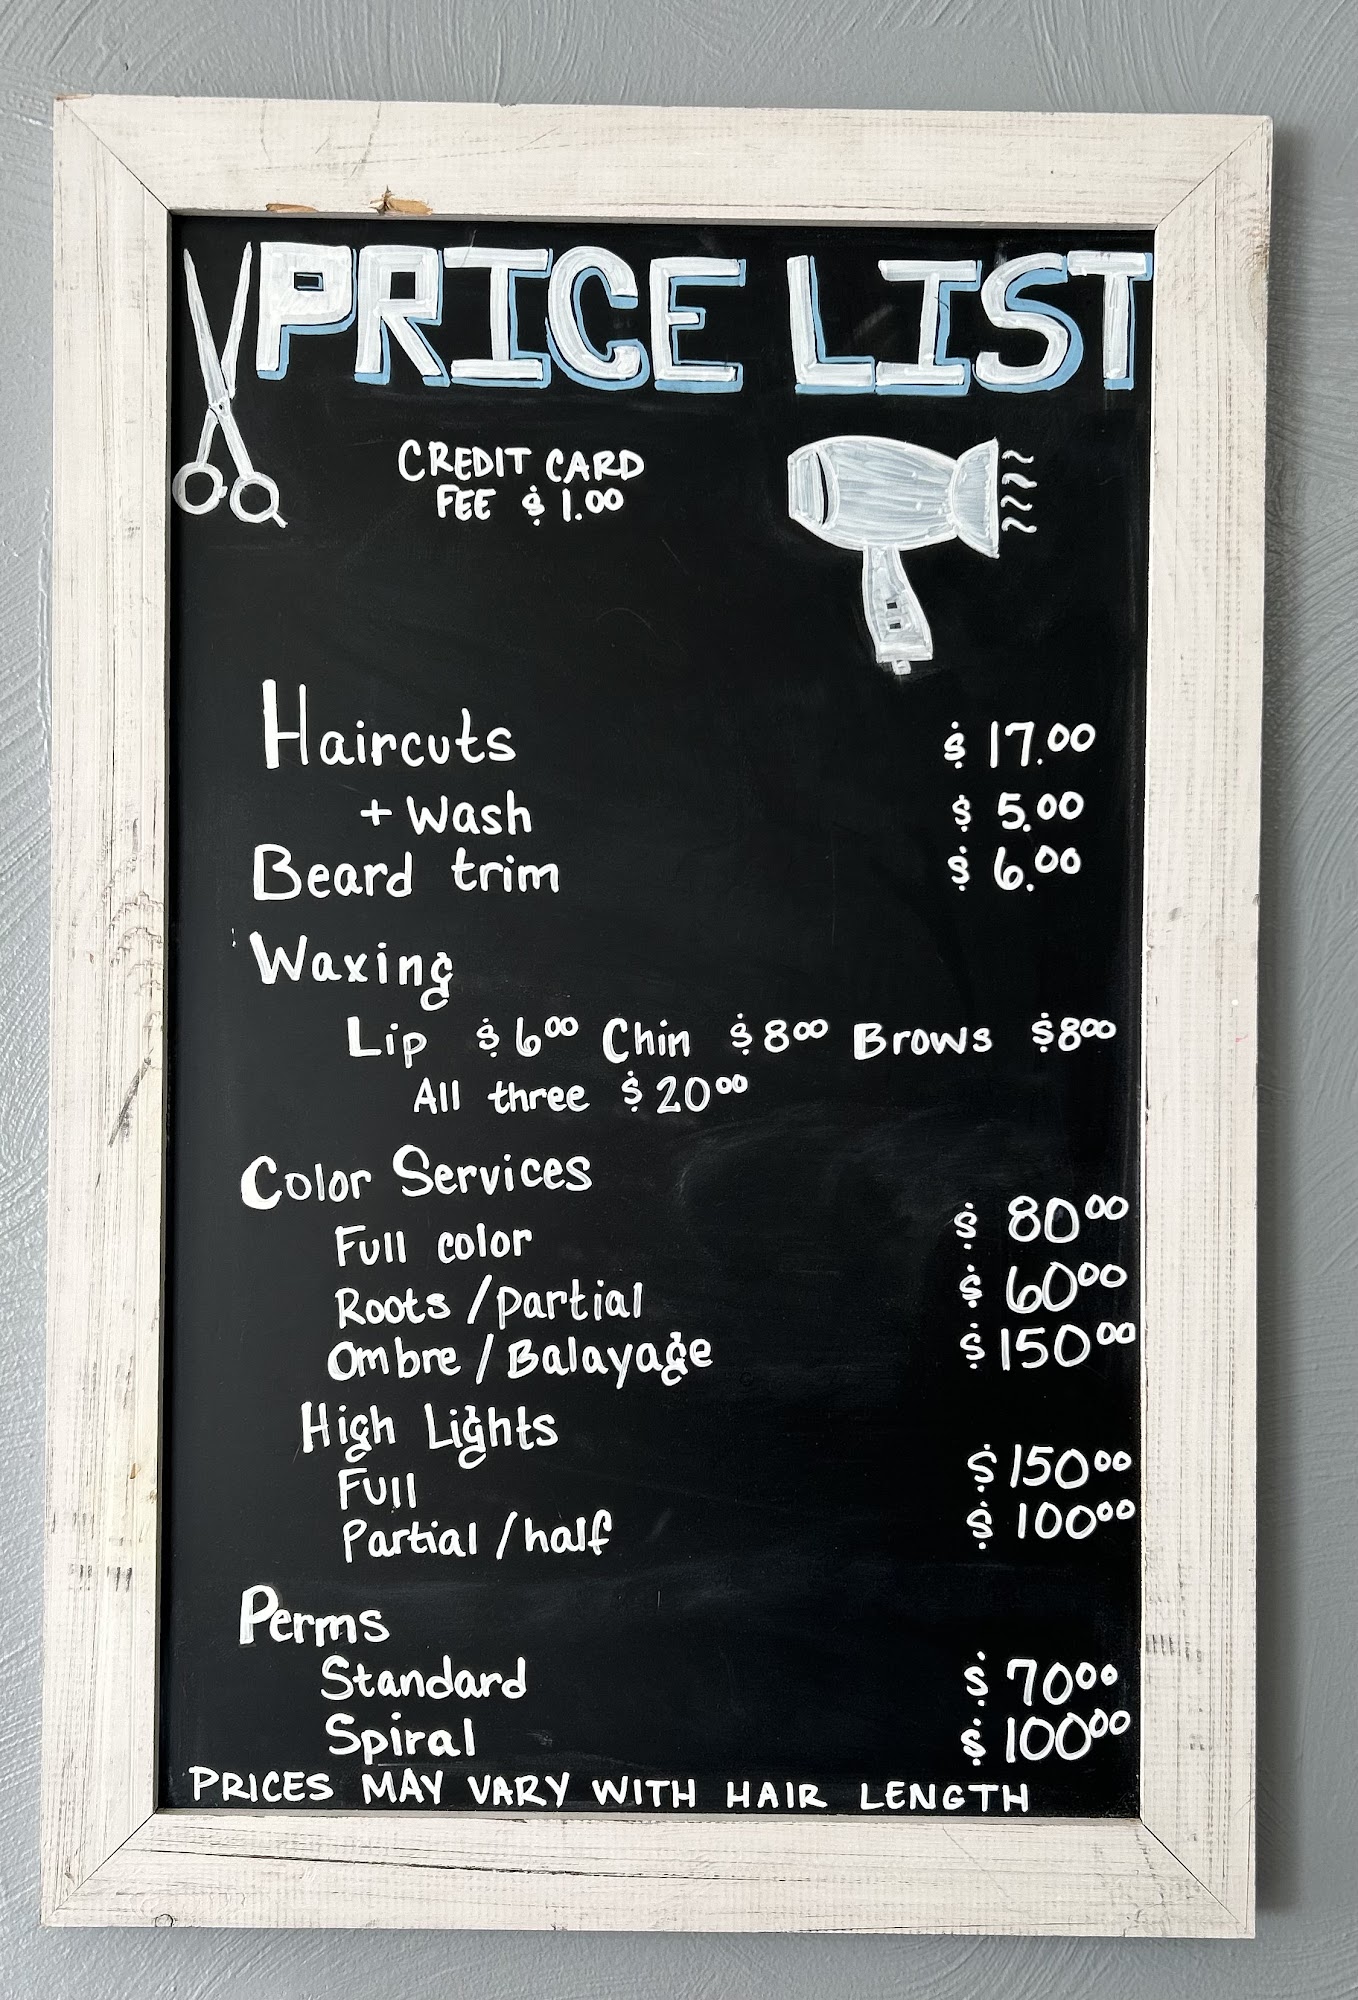 PRICE LIST
CREDIT CARD
FEE $1.00
Haircuts $17.00
+ Wash $5.00
Beard trim $6.00
Waxing
Lip $6.00 Chin $8.00 Brows $8.00
All three $20.00
Color Services
Full color $80.00
Roots/partial $60.00
Ombre/Balayage $150.00
High Lights
Full $150.00
Partial/half $100.00
Perms
Standard $70.00
Spiral $100.00
PRICES MAY VARY WITH HAIR LENGTH